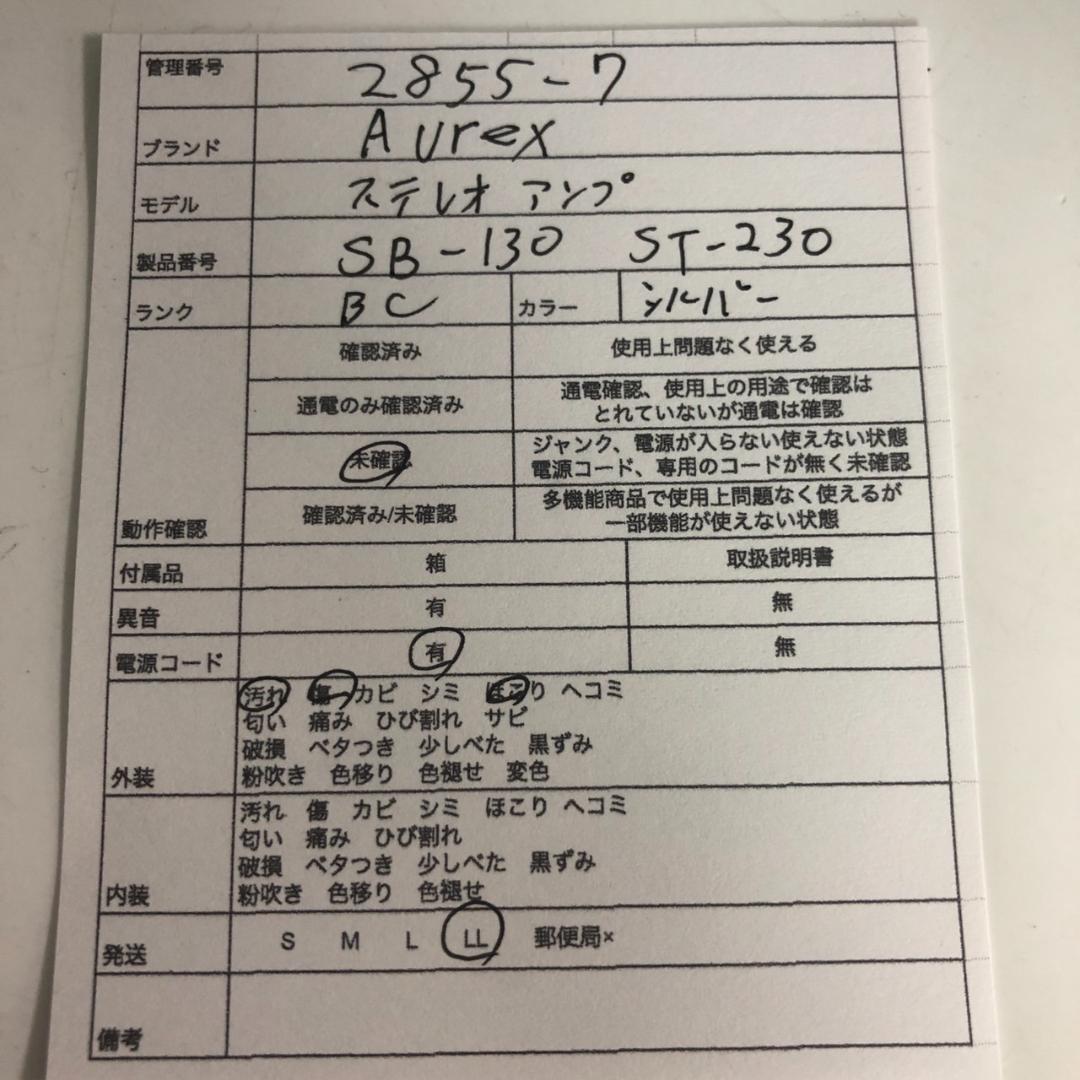 管理番号 2855-7
ブランド Aurex
モデル ステレオアンプ
製品番号 SB-130 ST-230
ランク BC カラー シルバー
確認済み 使用上問題なく使える
通電のみ確認済み 通電確認、使用上の用途で確認は
とれていないが通電は確認
未確認 ジャンク、電源が入らない使えない状態
電源コード、専用のコードが無く未確認
動作確認 確認済み/未確認 多機能商品で使用上問題なく使えるが
一部機能が使えない状態
付属品 箱 取扱説明書
異音 有 無
電源コード 有 無
汚れ 傷 カビ シミ ほこり ヘコミ
匂い 痛み ひび割れ サビ
破損 ベタつき 少しべた 黒ずみ
外装 粉吹き 色移り 色褪せ 変色
汚れ 傷 カビ シミ ほこり ヘコミ
匂い 痛み ひび割れ
破損 ベタつき 少しべた 黒ずみ
内装 粉吹き 色移り 色褪せ
発送 S M L LL 郵便局×
備考